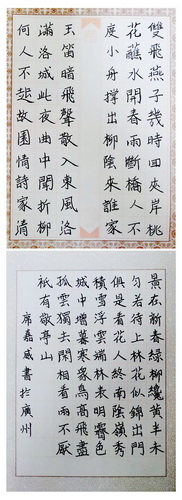 雙飛燕子幾時回夾岸桃
花蘸水開春雨斷橋人不
度小舟撐出柳陰來誰家
玉笛暗飛聲散入東風洛
滿洛城此夜曲中聞折柳
何人不起故園情詩家清
景在新春綠柳纔黃半未
勻若待上林花似錦出門
俱是看花人終南陰嶺秀
積雪浮雲端林表明霽色
城中增暮寒眾鳥高飛盡
孤雲獨去閒相看兩不厭
祇有敬亭山
席嘉威書於廣州